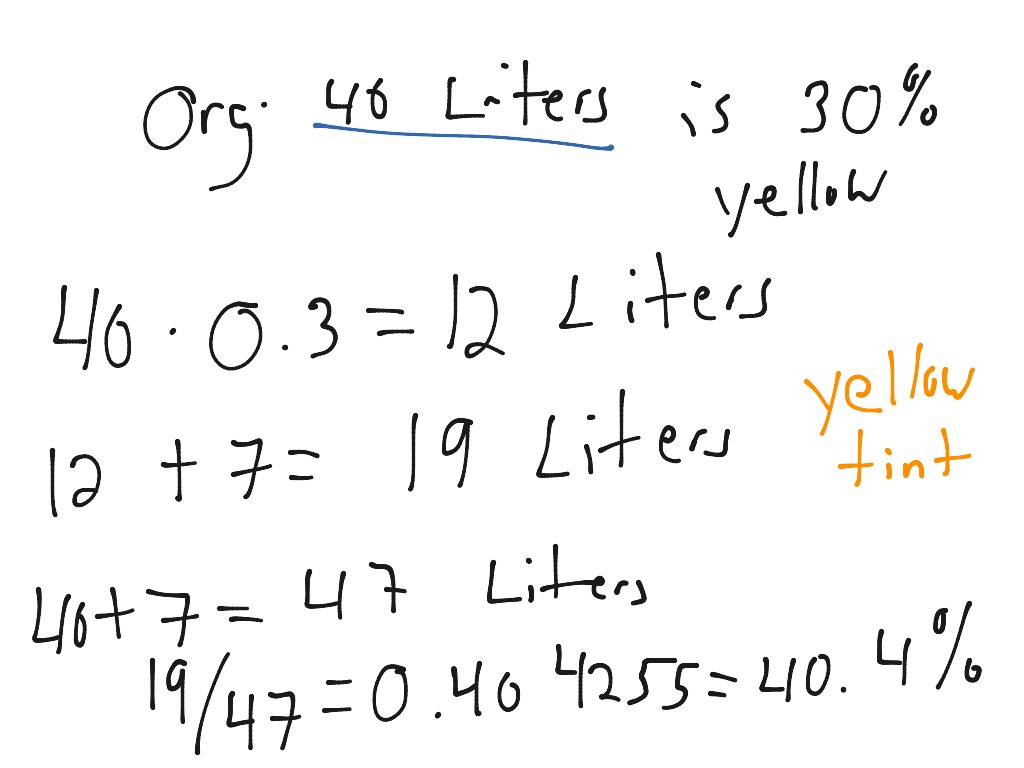 Org. 40 Liters is 30%
yellow
40 · 0.3 = 12 Liters
yellow
12 + 7 = 19 Liters
tint
40 + 7 = 47 Liters
19/47 = 0.404255 = 40.4%